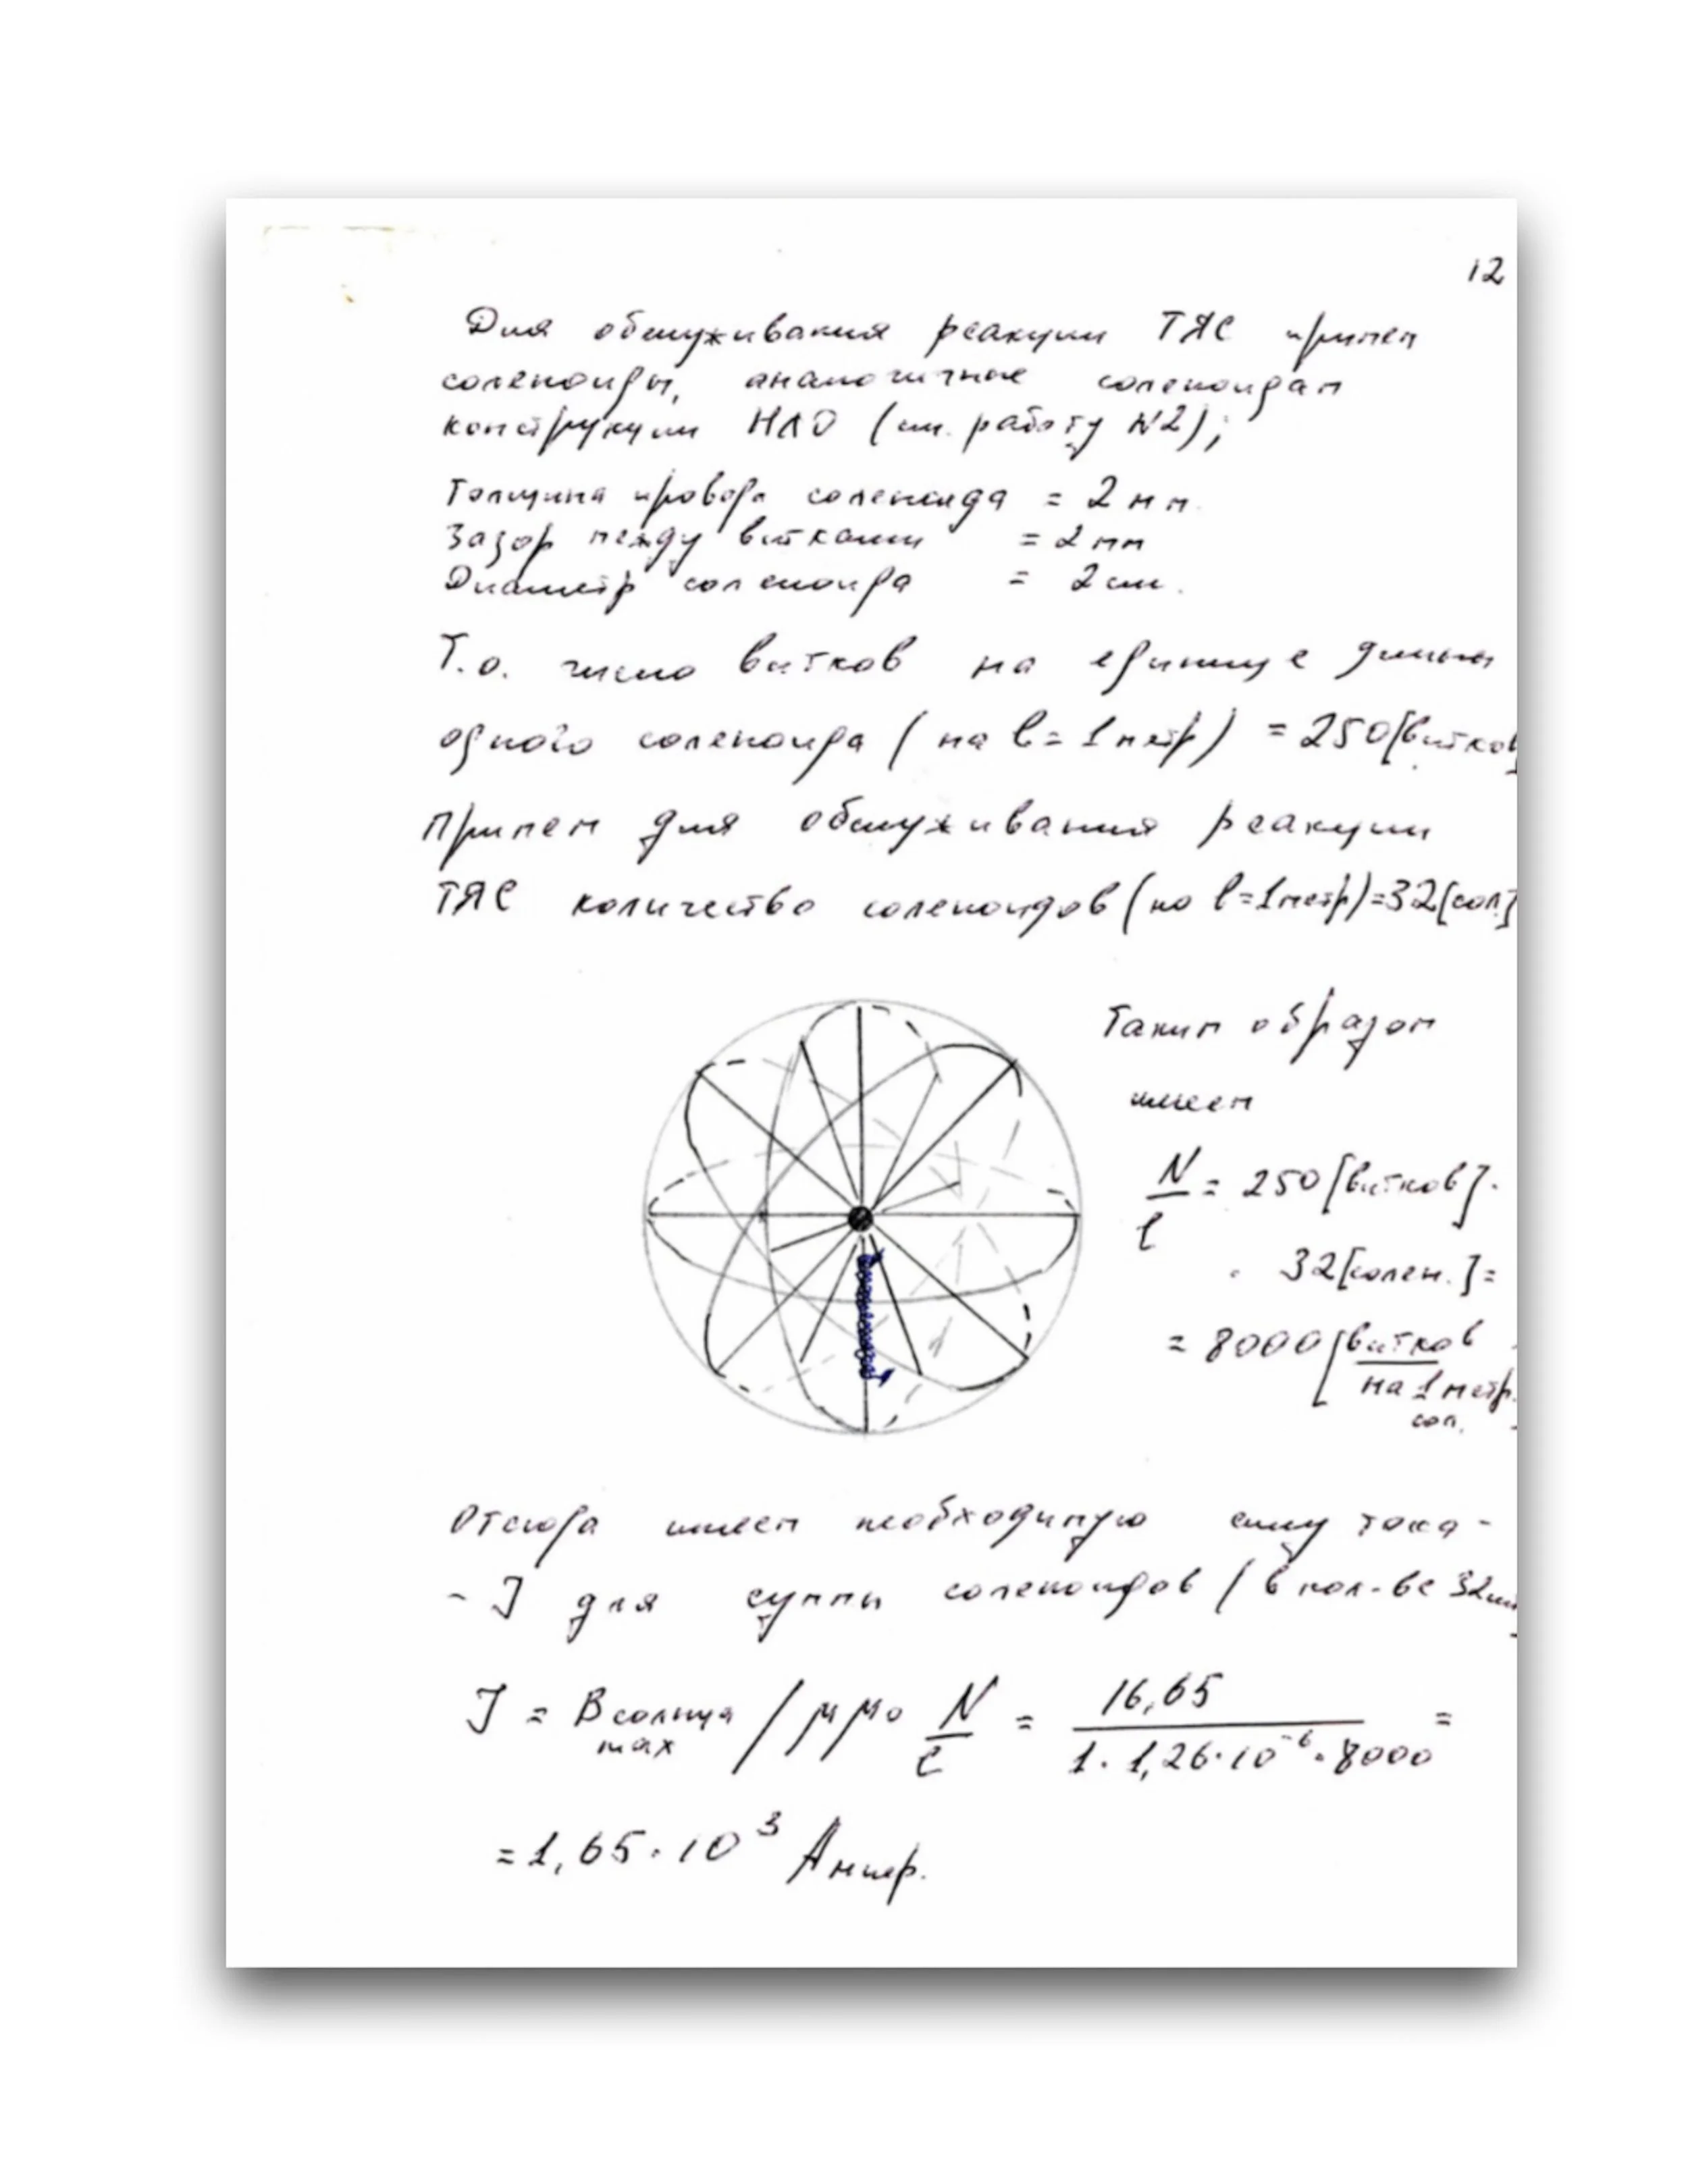 12
Для обслуживания реакции ТЯС примем
соленоиды, аналогичные соленоидам
конструкции НЛО (см. работу N2);
Толщина провода соленоида = 2 мм.
Зазор между витками = 2 мм
Диаметр соленоида = 2 см.
Т.о. число витков на единице длины
одного соленоида (на l = 1 метр) = 250 [витков]
Примем для обслуживания реакции
ТЯС количество соленоидов (на l = 1 метр) = 32 [сол.]
Таким образом
имеем
N/l = 250 [витков] ·
· 32 [солен.] =
= 8000 [витков
на 1 метр.
сол.
Отсюда имеем необходимую силу тока -
- J для суммы соленоидов (в кол-ве 32 шт
J = B солнца max / μ μ₀ N/l = 16,65 / 1 · 1,26 · 10⁻⁶ · 8000 =
= 1,65 · 10³ Ампер.